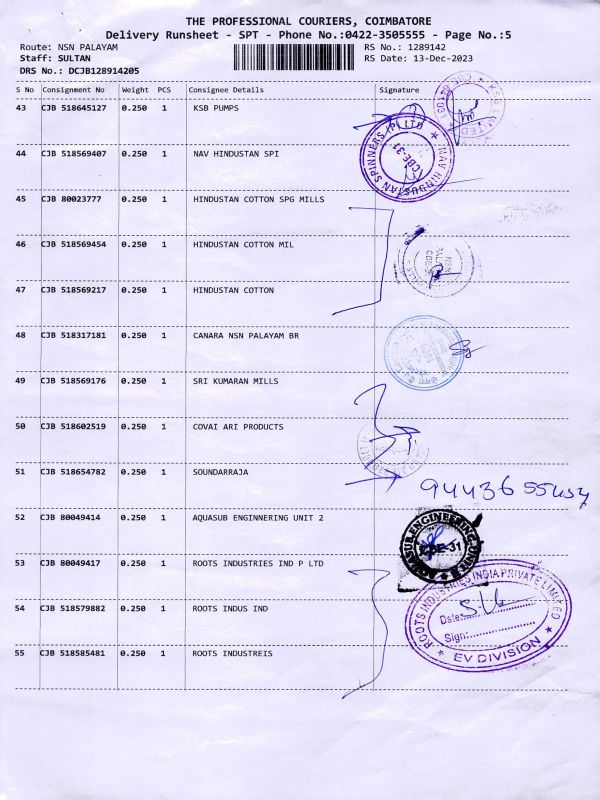 THE PROFESSIONAL COURIERS, COIMBATORE
Delivery Runsheet - SPT - Phone No.:0422-3505555 - Page No.:5
Route: NSN PALAYAM RS No.: 1289142
Staff: SULTAN RS Date: 13-Dec-2023
DRS No.: DCJB128914205
S No Consignment No Weight PCS Consignee Details Signature
43 CJB 518645127 0.250 1 KSB PUMPS
44 CJB 518569407 0.250 1 NAV HINDUSTAN SPI
NAV HINDUSTAN SPINNERS (P) LTD
CBE-31
45 CJB 80023777 0.250 1 HINDUSTAN COTTON SPG MILLS
46 CJB 518569454 0.250 1 HINDUSTAN COTTON MIL
47 CJB 518569217 0.250 1 HINDUSTAN COTTON
48 CJB 518317181 0.250 1 CANARA NSN PALAYAM BR
49 CJB 518569176 0.250 1 SRI KUMARAN MILLS
50 CJB 518602519 0.250 1 COVAI ARI PRODUCTS
51 CJB 518654782 0.250 1 SOUNDARRAJA
52 CJB 80049414 0.250 1 AQUASUB ENGINNERING UNIT 2
CBE-31
53 CJB 80049417 0.250 1 ROOTS INDUSTRIES IND P LTD
54 CJB 518579882 0.250 1 ROOTS INDUS IND
ROOTS INDUSTRIES INDIA PRIVATE LIMITED
Date:
Sign:
EV DIVISION
55 CJB 518585481 0.250 1 ROOTS INDUSTREIS